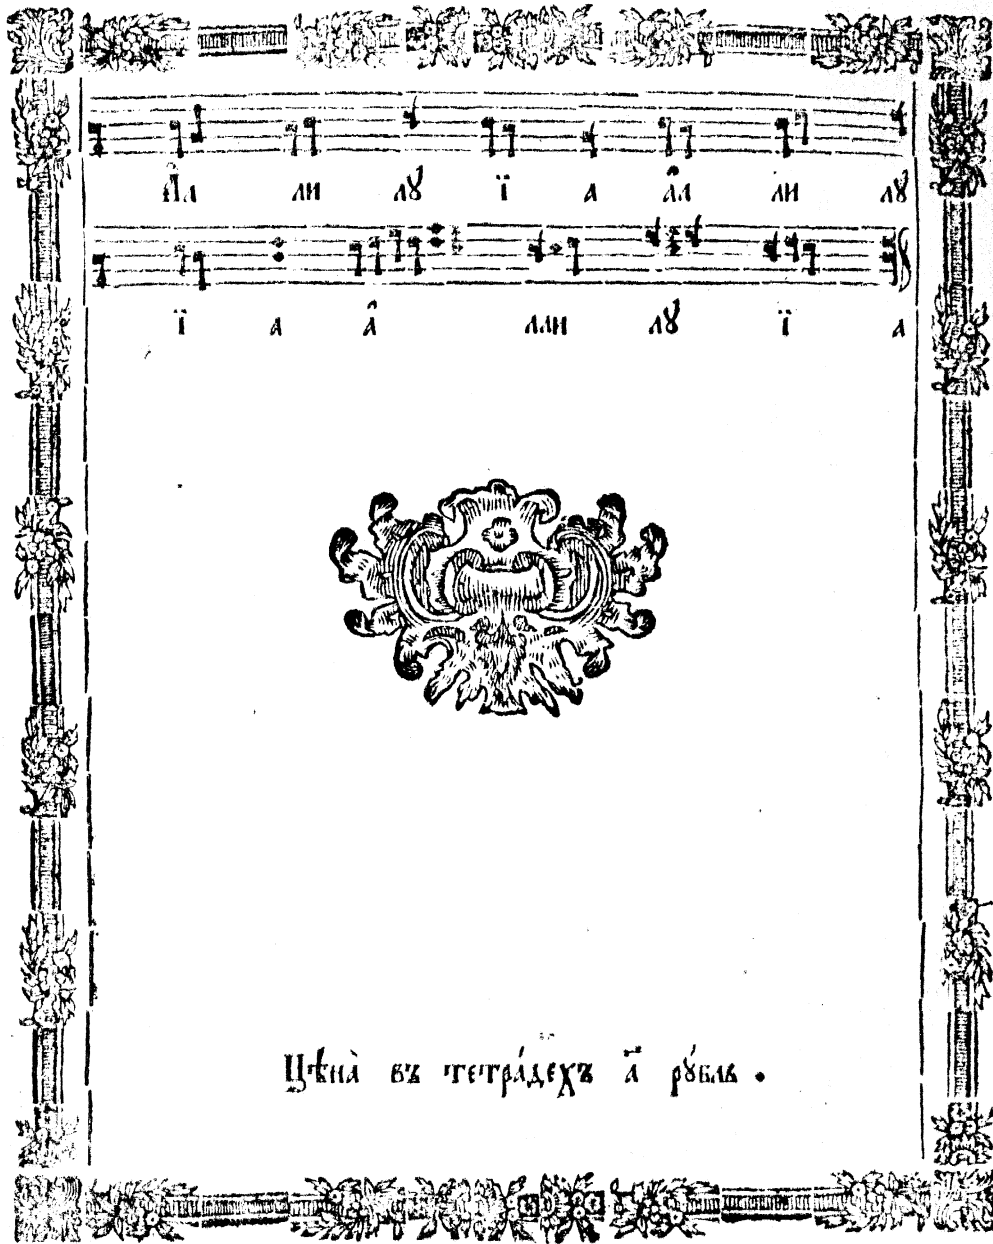 А҆л ли лꙋ ї а а҆л ли лꙋ
ї а а҆ лли лꙋ ї а
Цѣна̀ въ тетра́дехъ а҃ рꙋ́бль .